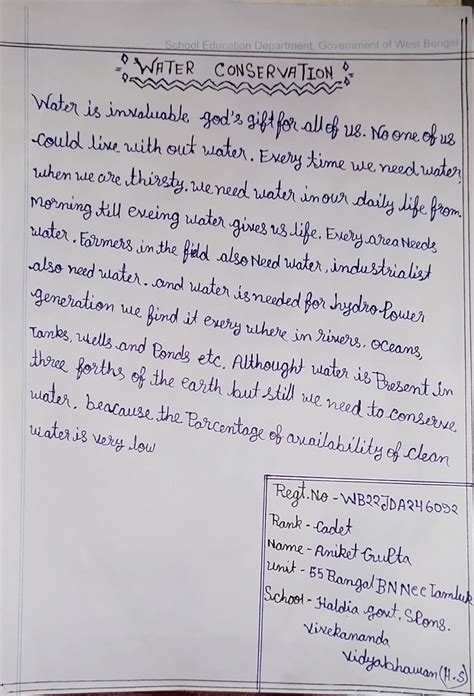 School Education Department, Government of West Bengal
WATER CONSERVATION
Water is invaluable god's gift for all of us. No one of us
could live with out water. Every time we need water,
when we are thirsty. we need water in our daily life from
Morning till eveing water gives us life. Every area Needs
water. Farmers in the field also Need water, industrialist
also need water. and water is needed for hydro Power
generation we find it every where in rivers. Oceans,
Tanks, wells and Ponds etc. Althought water is Present in
three forths of the earth but still we need to conserve
water. beacause the Parcentage of availability of clean
water is very low
Regt. No - WB22JDA246092
Rank - Cadet
Name - Aniket Gupta
Unit - 55 Bangal BN Ncc Tamluk
School - Haldia govt. Spons.
Vivekananda
Vidyabhawan (H.S)